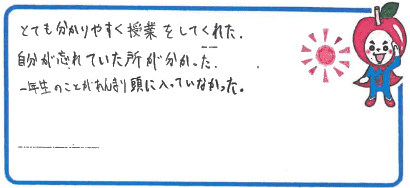 とても分かりやすく授業をしてくれた.
自分が忘れていた所が分かった.
一年生のことがあんまり頭に入っていなかった。